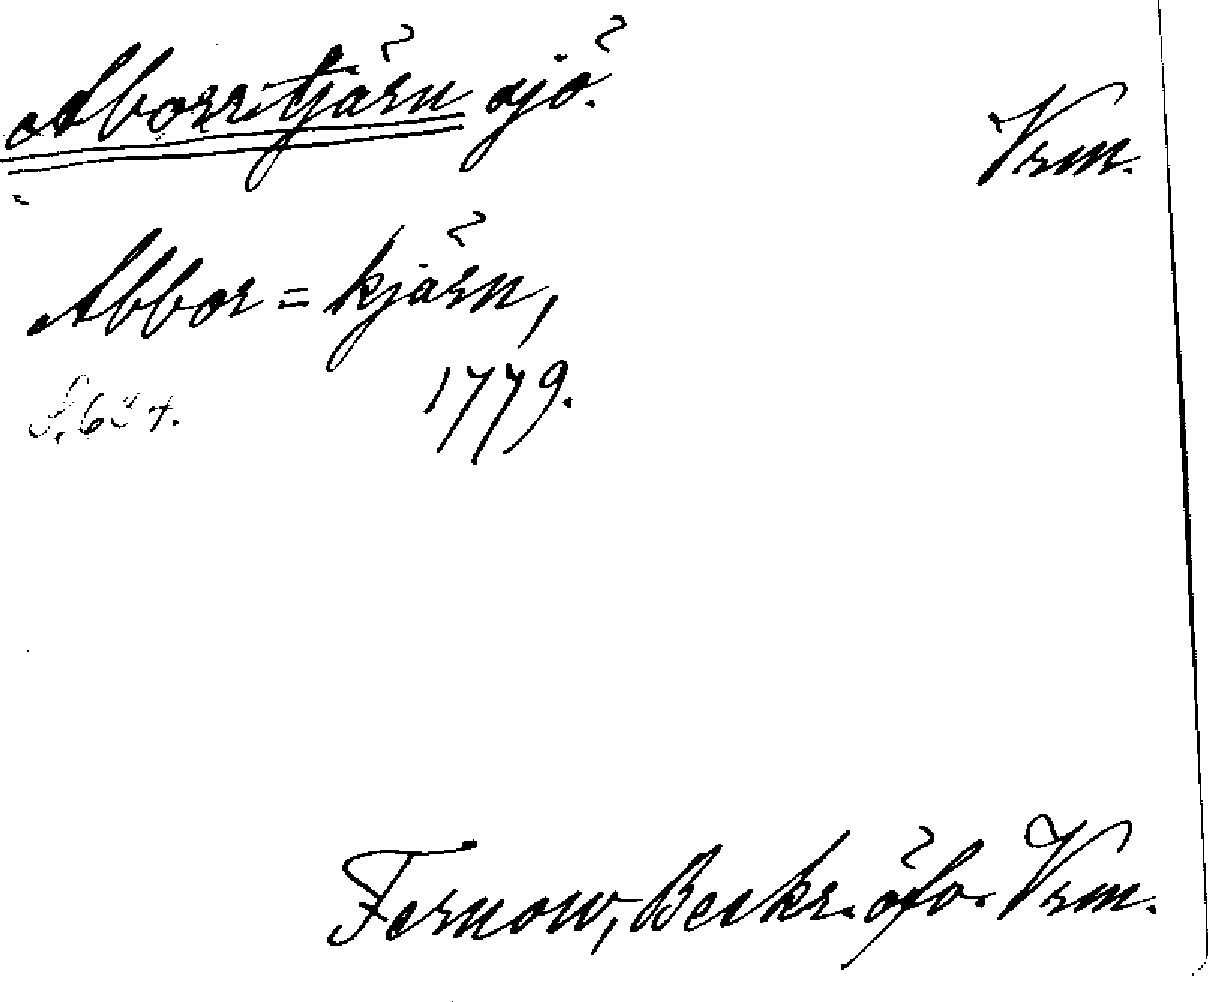 Aborrtjärn sjö.
Vrm.
Abbor=kjärn,
1779.
Fernow, Beskr. öfv. Vrm.